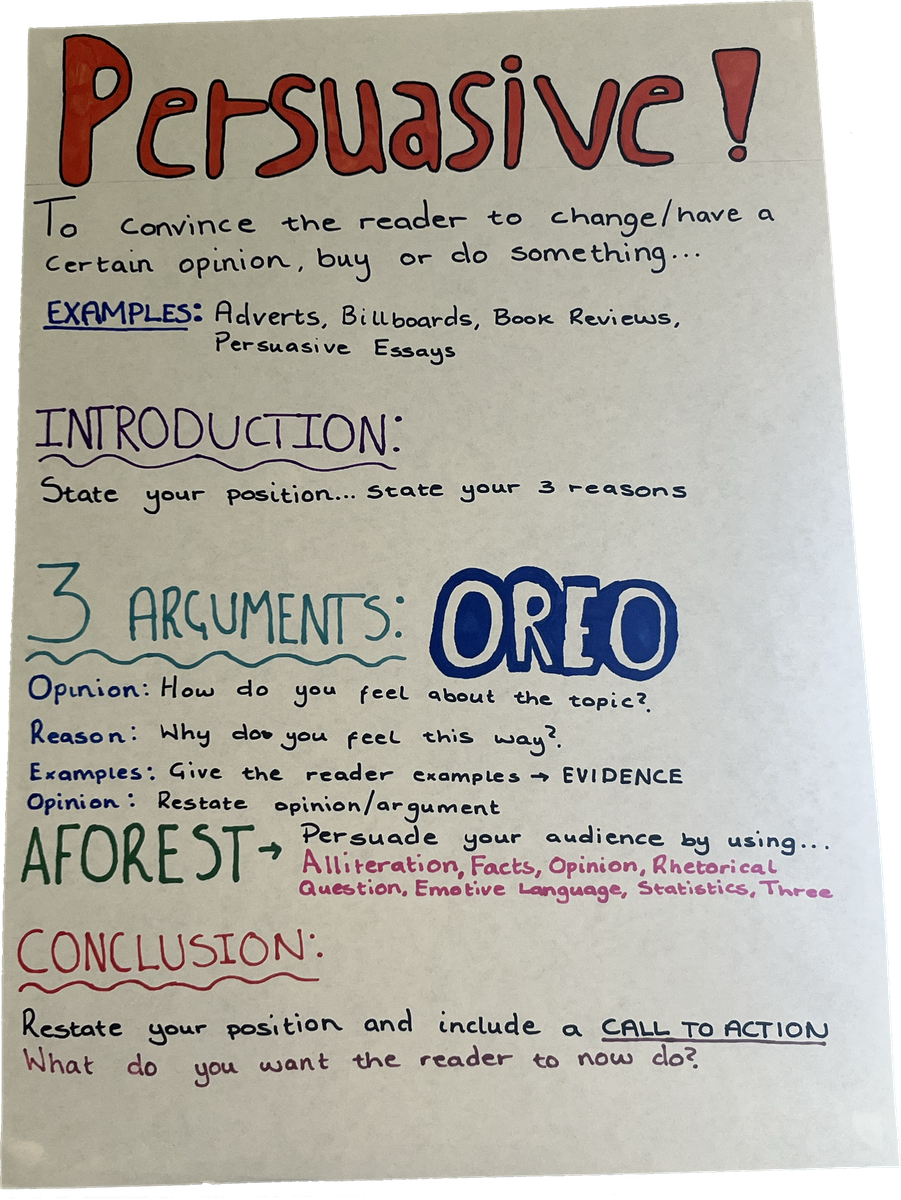 Persuasive!
To convince the reader to change/have a
certain opinion, buy or do something...
EXAMPLES: Adverts, Billboards, Book Reviews,
Persuasive Essays
INTRODUCTION:
State your position... state your 3 reasons
3 ARGUMENTS: OREO
Opinion: How do you feel about the topic?
Reason: Why do you feel this way?
Examples: Give the reader examples → EVIDENCE
Opinion: Restate opinion/argument
AFOREST → Persuade your audience by using...
Alliteration, Facts, Opinion, Rhetorical
Question, Emotive Language, Statistics, Three
CONCLUSION:
Restate your position and include a CALL TO ACTION
What do you want the reader to now do?